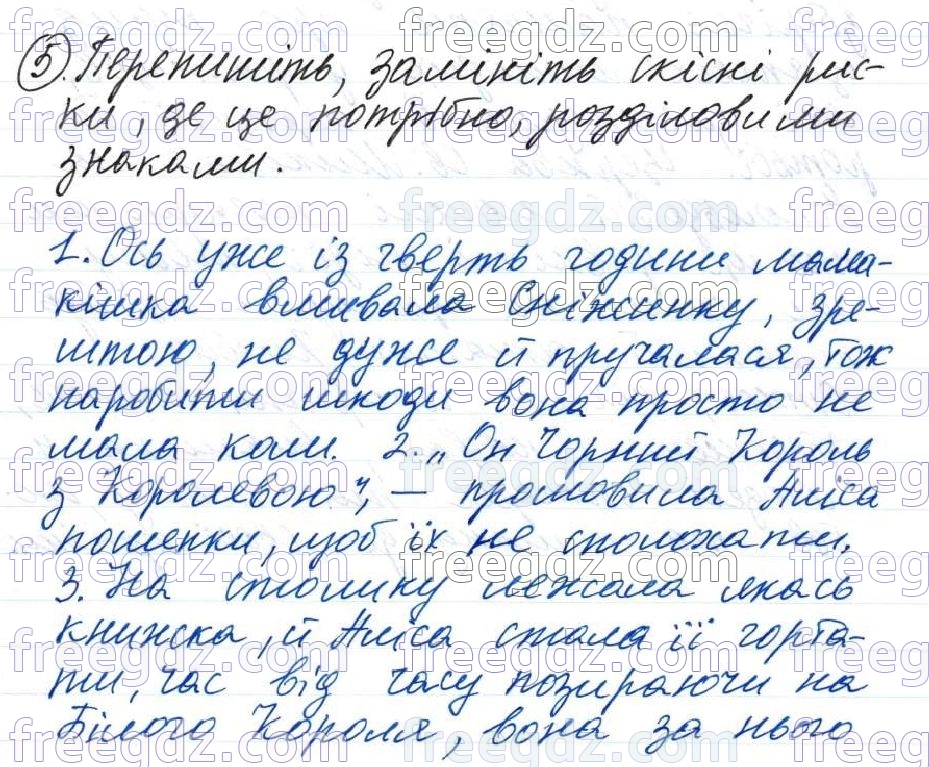 5. Перепишіть, замініть скісні рис-
ки, де це потрібно, розділовими
знаками.
1. Ось уже із чверть години мама-
кішка вмивала Сніжинку, зре-
штою, не дуже й пручалася, тож
наробити шкоди вона просто не
мала коли. 2. „Он Чорний Король
з Королевою", — промовила Аліса
пошепки, щоб їх не сполохати.
3. На столику лежала якась
книжка, й Аліса стала її горта-
ти, час від часу позираючи на
Білого Короля, вона за нього
freegdz.com freegdz.com freegdz.com freegdz